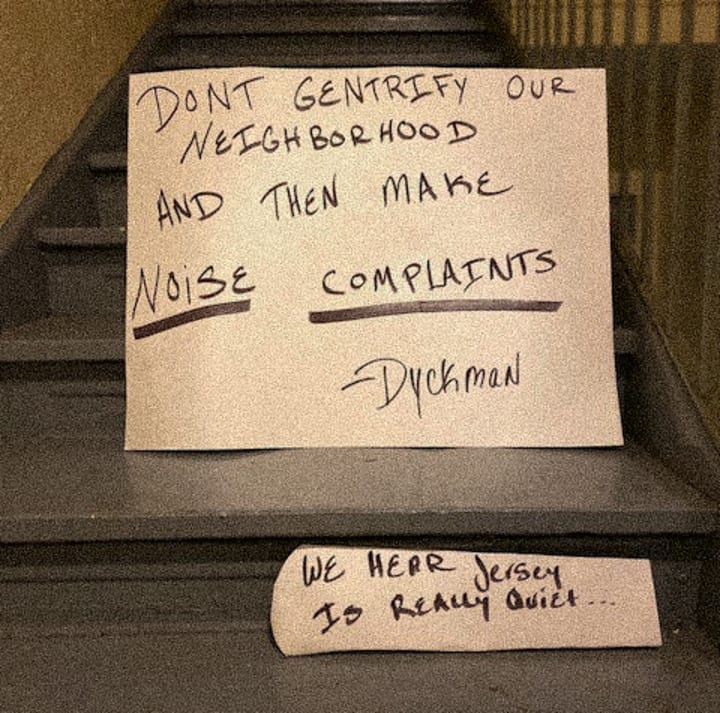 DONT GENTRIFY OUR
NEIGHBORHOOD
AND THEN MAKE
NOiSE COMPLAINTS
-Dyckman
WE HEAR Jersey
Is REALLY Quiet...